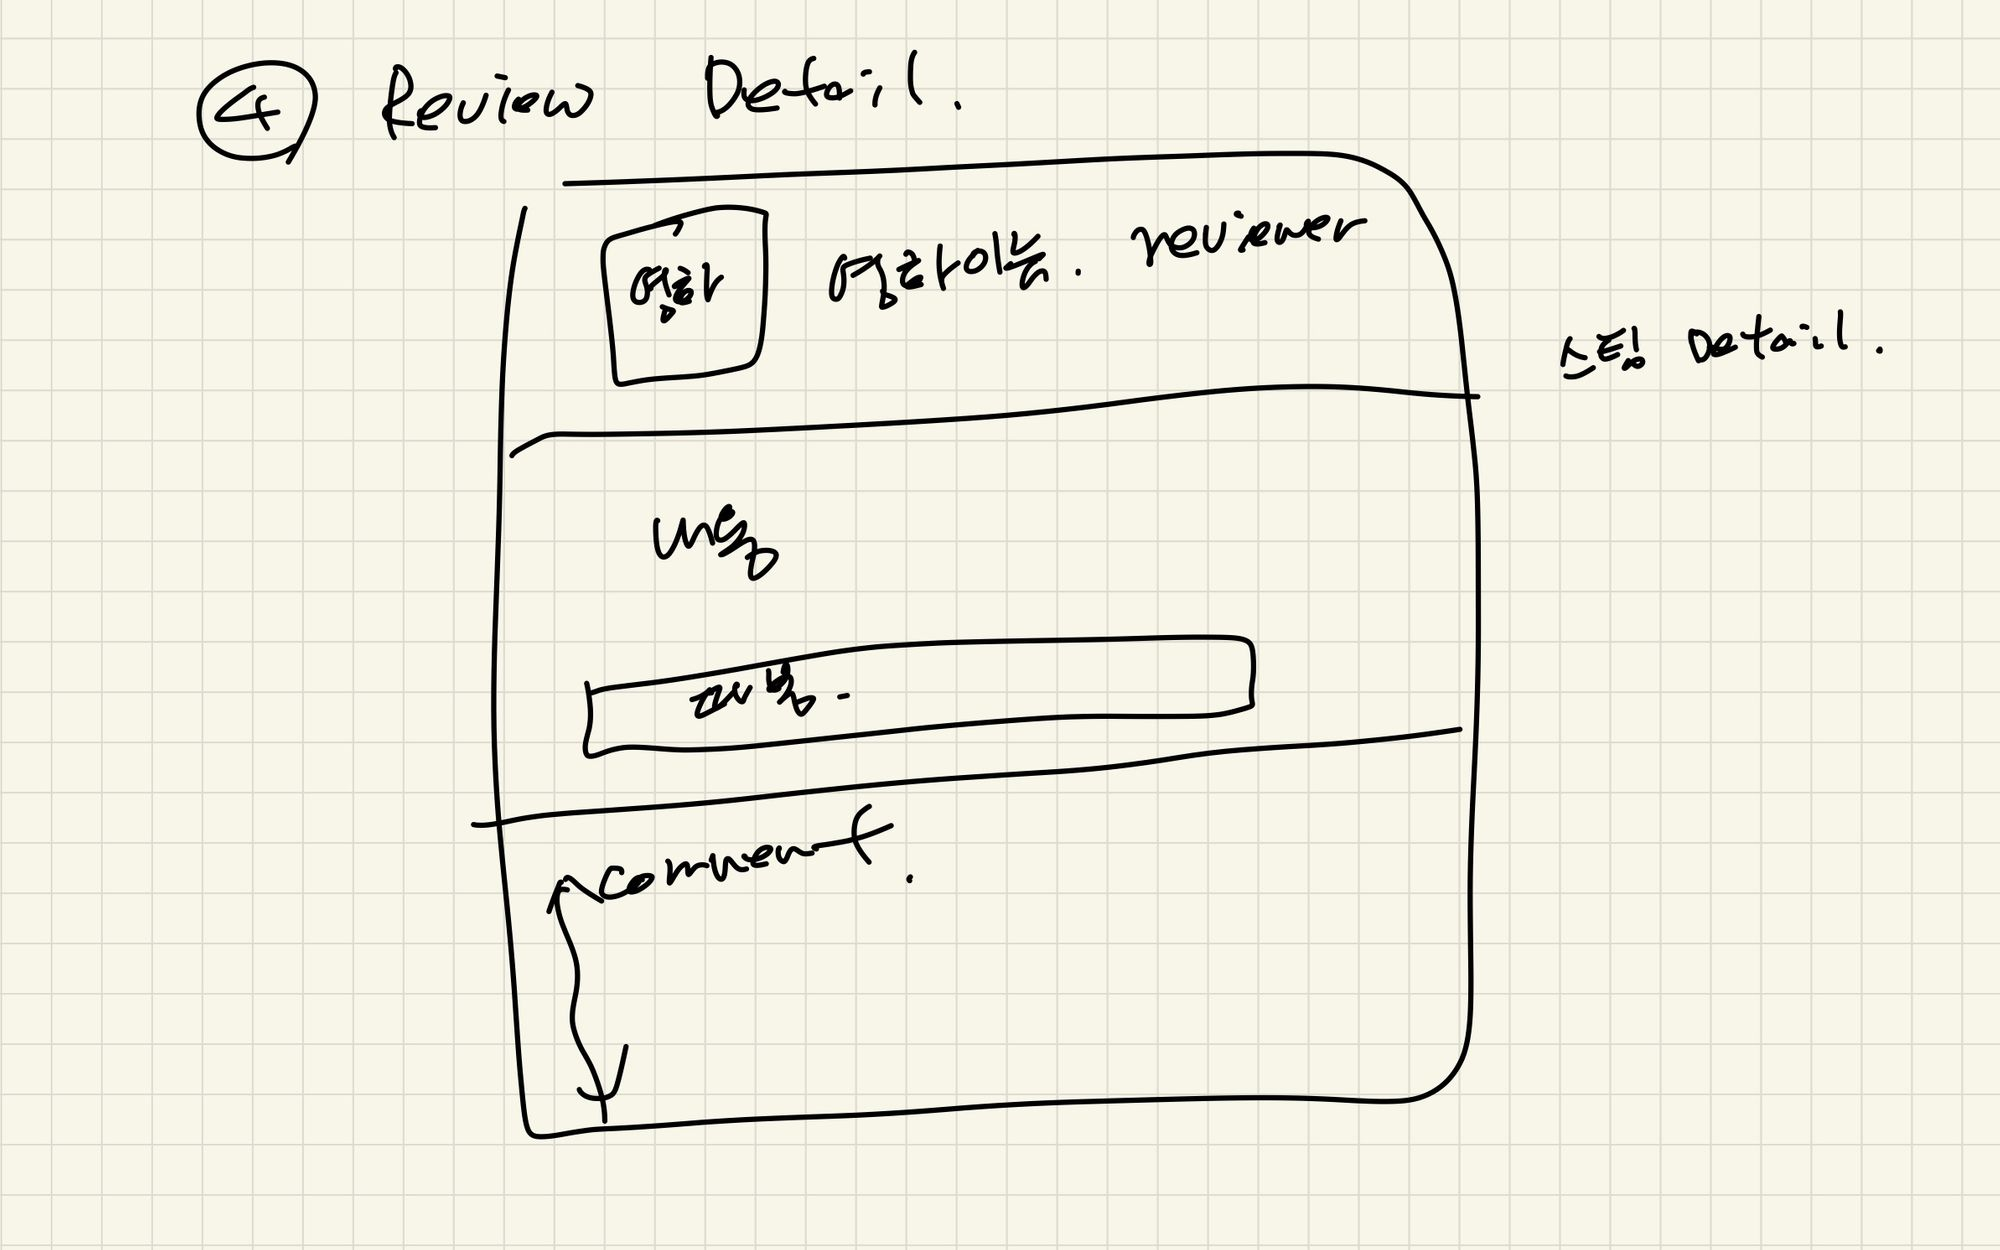 ④ Review Detail.
영화
영화이름. reviewer
스팀 Detail.
내용
comment.